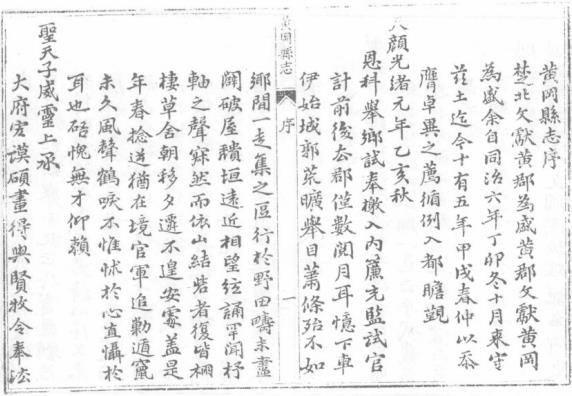 黄岡縣志序
楚北文獻黄郡為盛黄郡文獻黄岡
為盛余自同治六年丁卯冬十月来守
兹土迄今十有五年甲戌春仲以忝
膺卓異之薦循例入都瞻覲
天顔光緒元年乙亥秋
恩科舉鄉試奉檄入内簾充監試官
計前後去郡僅數閲月耳憶下車
伊始城郭荒曠舉目蕭條殆不如
黄岡縣志
序
一
鄉間一走集之區行於野田疇未盡
闢破屋穨垣遠近相望絃誦罕聞杼
軸之聲寂然而依山結砦者復皆栅
棲草舍朝移夕遷不遑安處蓋是
年春捻逆猶在境官軍追勦遁竄
未久風聲鶴唳不惟怵於心直懾於
耳也啓愧無才仰賴
聖天子威靈上承
大府宏謨碩畫得與賢牧令奉法